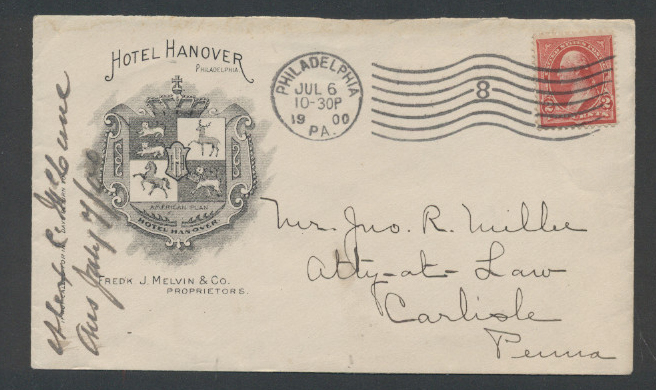 HOTEL HANOVER
PHILADELPHIA
H
AMERICAN PLAN
HOTEL HANOVER
FRED'K J. MELVIN & CO.
PROPRIETORS.
PHILADELPHIA
JUL 6
10-30P
19 00
PA.
8
2 2
CENTS
Mr. Jno. R. Miller
Atty-at-Law
Carlisle
Penna
Ans July 7/00